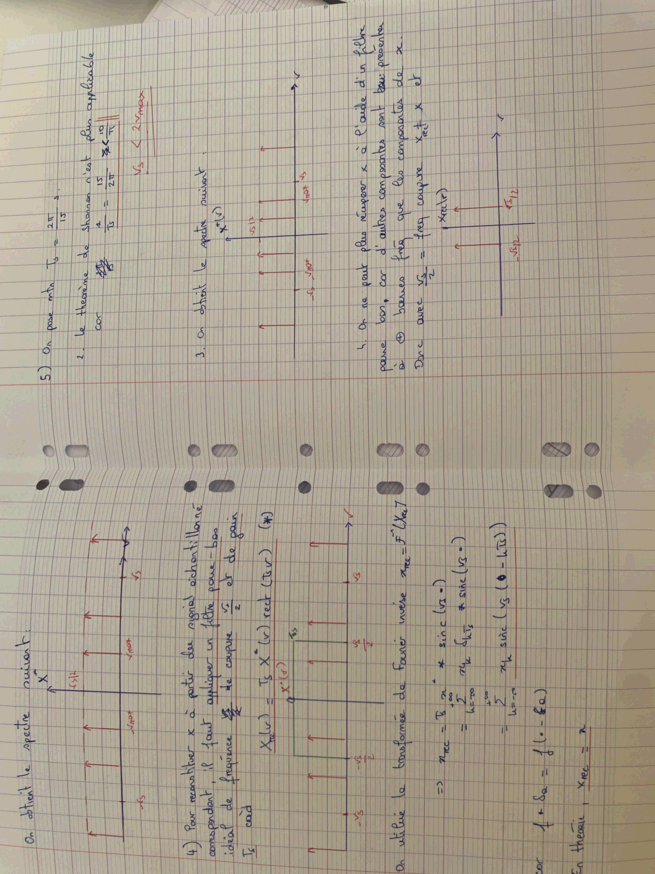 On obtient le spectre suivant.
X*
1/Ts
-νs
-νmax
νmax
νs
ν
4) Pour reconstituer x à partir du signal échantillonné
correspondant, il faut appliquer un filtre passe-bas
idéal de fréquence de coupure νs/2 et de gain
Ts càd
Xrec(ν) = Ts X*(ν) rect (Ts ν) (*)
X*(ν)
Ts
-νs
-νs/2
νs/2
νs
ν
On utilise la transformée de Fourier inverse xrec = F⁻¹(Xrec)
=> xrec = Ts x* * sinc (νs •)
= Σ xk δkTs * sinc (νs •)
k=-∞
+∞
= Σ xk sinc (νs (• - kTs))
k=-∞
+∞
car f * δa = f(• - a)
En théorie, xrec = x
5) On pose mtn Ts = 2π/15 s.
2. Le théorème de Shannon n'est plus applicable
car 1/Ts = 15/2π < 10/π
νs < 2νmax
3. On obtient le spectre suivant.
X*(ν)
1/Ts
-νs
-νmax
νmax
νs
ν
4. On ne peut plus récupérer x à l'aide d'un filtre
passe bas, car d'autres composantes sont présentes
à ⊕ basses fréq que les composantes de x.
Donc avec νs/2 = freq coupure xrec ≠ x et
Xrec(ν)
-νs/2
νs/2
ν